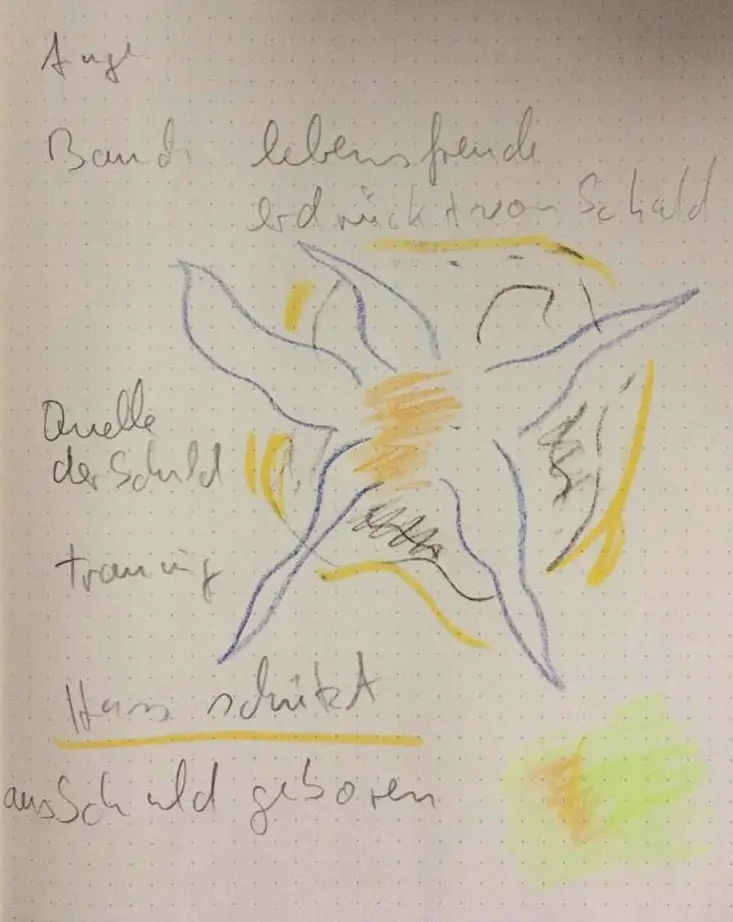 Auge
Bauch lebensfreude
erdrückt von Schuld
Quelle
der Schuld
traurig
Hass schützt
aus Schuld geboren